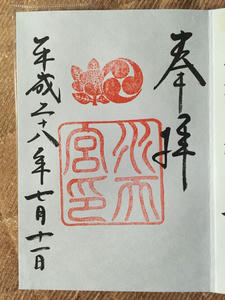 奉拝
水天
宮印
平成二十八年七月十一日